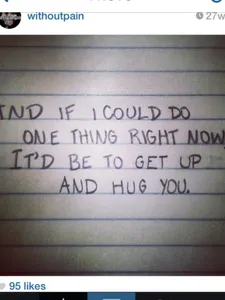 withoutpain
27w
AND IF I COULD DO
ONE THING RIGHT NOW
IT'D BE TO GET UP
AND HUG YOU.
95 likes